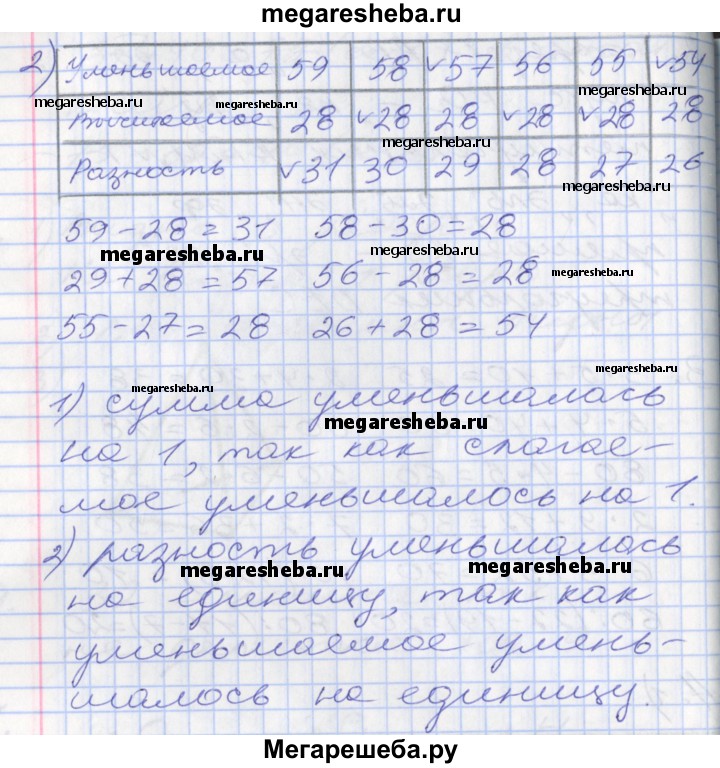 megaresheba.ru
2) Уменьшаемое 59 58 ✓57 56 55 ✓54
megaresheba.ru megaresheba.ru megaresheba.ru
Вычитаемое 28 ✓28 28 ✓28 ✓28 28
megaresheba.ru
Разность ✓31 30 29 28 27 26
megaresheba.ru
59 - 28 = 31 58 - 30 = 28
megaresheba.ru megaresheba.ru
29 + 28 = 57 56 - 28 = 28 megaresheba.ru
55 - 27 = 28 26 + 28 = 54
megaresheba.ru megaresheba.ru
1) сумма уменьшалась
megaresheba.ru
на 1, так как слагае-
мое уменьшалось на 1.
2) разность уменьшалась
megaresheba.ru megaresheba.ru
на единицу, так как
уменьшаемое умень-
шалось на единицу.
Мегарешеба.ру